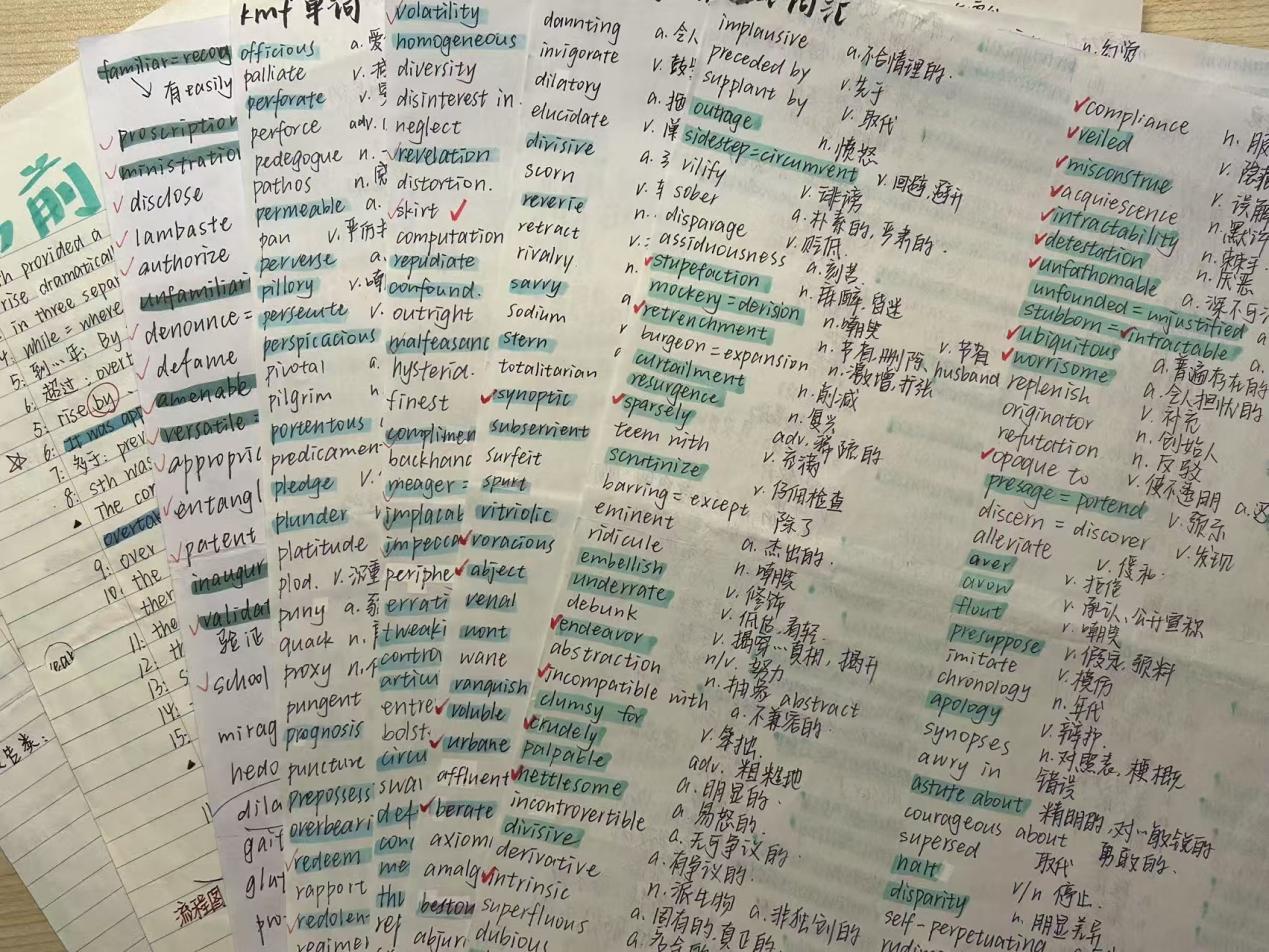 前
provided a
rise dramatical
in three separ
while = where
5: 到……年: By
6: 超过: overt
5: rise by
6: It was app
7: 多于: prev
8: sth was
The cor
overta
9: over
10: the
ther
11: the
12: th
13: s
14:
15:
流程图
familiar = recog
有 easily
proscription
ministration
disclose
lambaste
authorize
unfamiliar
denounce =
defame
amenable
versatile =
appropric
entangl
patent
inaugur
validat
验证
school
mirag
hedo
dila
gait
glut
pro
kmf 单词
officious
palliate
perforate
perforce adv.
pedegogue n.
pathos n.
permeable a.
pan v.
perverse a.
pillory v.
persecute v.
perspicacious
pivotal a.
pilgrim n.
portentous
predicamen
pledge v.
plunder
platitude
plod. v.
puny a.
quack n.
proxy n.
pungent
prognosis
puncture
prepossessi
overbeari
redeem
rapport
redolen
regimer
volatility
homogeneous
diversity
disinterest in.
neglect
revelation
distortion.
skirt
computation
repudiate
confound.
outright
malfeasanc
hysteria.
finest
complimen
backhanc
meager =
implacat
impecca
periphe
errati
tweaki
contra
articu
entre
bolst.
circu
swai
def
con
me
thu
ref
daunting
invigorate
dilatory
elucidate
divisive
scorn
reverie
retract
rivalry.
savvy
sodium
stern
totalitarian
synoptic
subservient
surfeit
spurt
vitriolic
voracious
abject
venal
wont
wane
vanquish
voluble
urbane
affluent
berate
axiom
amalg
bestow
abjur
implausive a. 不合情理的.
preceded by v. 先于
supplant by v. 取代
outrage n. 愤怒
sidestep = circumvent v. 回避, 避开
vilify v. 诽谤
sober a. 朴素的, 严肃的.
disparage v. 贬低.
assiduousness a. 刻苦
stupefaction n. 麻醉, 昏迷
mockery = derision n. 嘲笑
retrenchment n. 节省, 删除, v. 节省 husband
burgeon = expansion n. 激增, 扩张
curtailment n. 削减
resurgence n. 复兴
sparsely adv. 稀疏的
teem with v. 充满
scrutinize v. 仔细检查
barring = except 除了
eminent a. 杰出的.
ridicule n. 嘲笑
embellish v. 修饰
underrate v. 低估, 看轻.
debunk v. 揭穿…真相, 揭开
endeavor n/v. 努力
abstraction n. 抽象 abstract
incompatible with a. 不兼容的.
clumsy for v. 笨拙.
crudely adv. 粗糙地
palpable a. 明显的.
nettlesome a. 易怒的.
incontrovertible a. 无可争议的
divisive a. 有争议的.
derivative n. 派生物 a. 非独创的
intrinsic a. 固有的, 真正的.
superfluous
dubious
compliance n.
veiled v.
misconstrue v. 误解
acquiescence n. 默许
intractability n. 棘手.
detestation n. 厌恶
unfathomable a. 深不可
unfounded = unjustified a
stubborn = intractable a.
ubiquitous a. 普遍存在的
worrisome a. 令人担忧的
replenish v. 补充
originator n. 创始人
refutation n. 反驳
opaque to v. 使不透明
presage = portend v. 预示
discern = discover v. 发现
alleviate v. 缓和.
aver
avow v. 承认, 公开宣称
flout v. 嘲笑
presuppose v. 假定, 预料
imitate v. 模仿
chronology n. 年代
apology v. 辩护.
synopses n. 对照表, 梗概
awry in 错误
astute about 精明的, 对…敏锐的
courageous about 勇敢的.
supersed 取代
halt v/n 停止.
disparity n. 明显差异
self-perpetuating